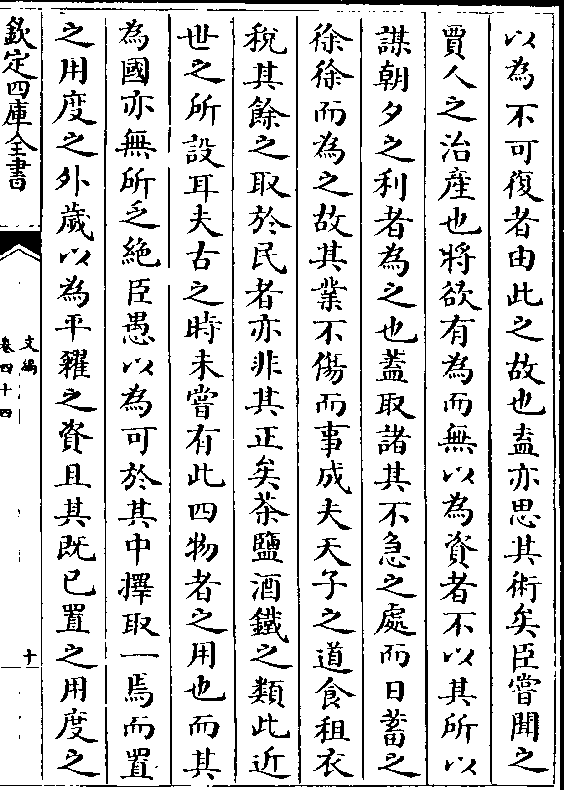 以為不可復者由此之故也盍亦思其術矣臣嘗聞之
賈人之治產也將欲有為而無以為資者不以其所以
謀朝夕之利者為之也蓋取諸其不急之處而日蓄之
徐徐而為之故其業不傷而事成夫天子之道食租衣
稅其餘之取於民者亦非其正矣茶鹽酒鐵之類此近
世之所設耳夫古之時未嘗有此四物者之用也而其
為國亦無所乏絕臣愚以為可於其中擇取一焉而置
之用度之外歲以為平糴之資且其既已置之用度之
欽定四庫全書
文編
卷四十四
十